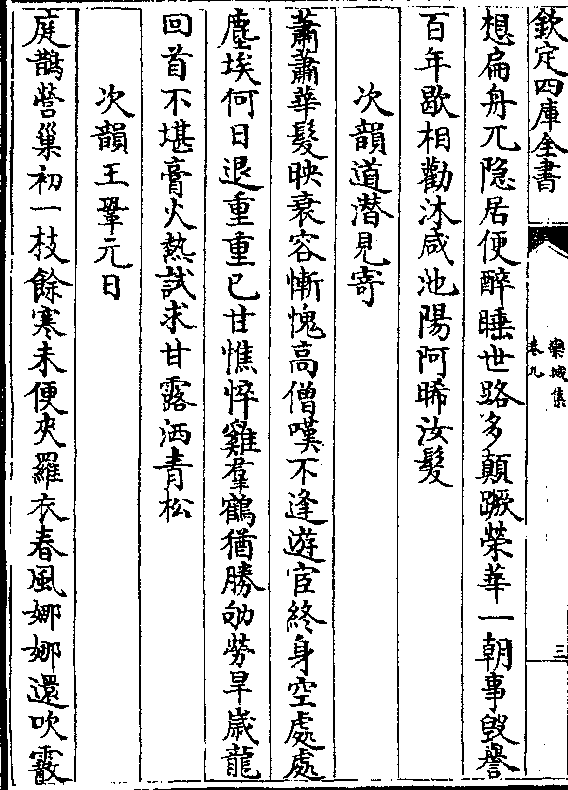 欽定四庫全書
欒城集
卷九
三
想扁舟兀隠居便醉睡世路多顛蹶榮華一朝事毁譽
百年歇相勸沐咸池陽阿晞汝髮
次韻道潛見寄
蕭蕭華髮映衰容慚愧髙僧嘆不逢遊宦終身空處處
塵埃何日退重重已甘憔悴雞羣鶴猶勝劬勞旱歲龍
回首不堪膏火熱試求甘露洒青松
次韻王鞏元日
庭鵲營巢初一枝餘寒未便夾羅衣春風娜娜還吹霰